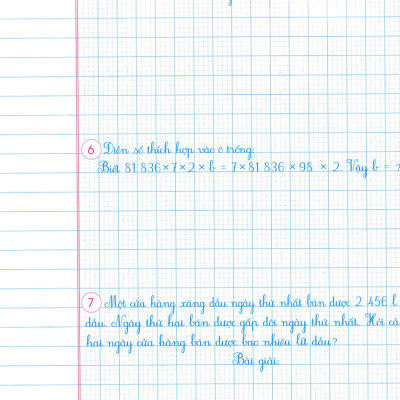 6 Điền số thích hợp vào ô trống:
Biết 81 836 × 7 × 2 × b = 7 × 81 836 × 98 × 2. Vậy b = ?
7 Một cửa hàng xăng dầu ngày thứ nhất bán được 2 456 l
dầu. Ngày thứ hai bán được gấp đôi ngày thứ nhất. Hỏi cả
hai ngày cửa hàng bán được bao nhiêu lít dầu?
Bài giải: